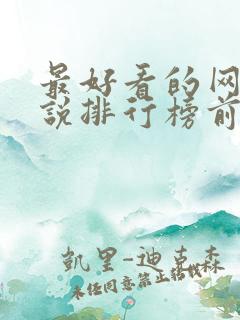 最好看的网
说排行榜前
凯里-迪克森
未经同意禁止转载